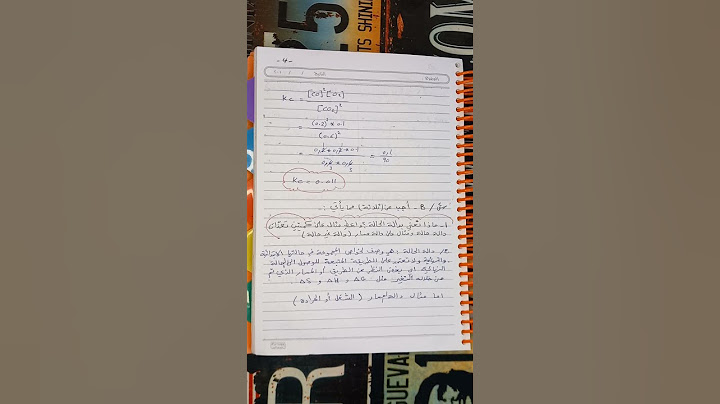 - ٧ -
Kc = [CO]² [O₂]
[CO₂]²
= (0.2)² * 0.1
(0.6)²
= 0.2 * 0.2 * 0.1 = 0.1
0.6 * 0.6
Kc = 0.011
B - أجب عن (ثلاثة) مما يأتي :-
1- ماذا نعني بدالة الحالة؟ واعط مثال على كميتين تعدان
دالة حالة ومثال على دالة مسار (دالة غير حالة)
ج/ دالة الحالة : هي وصف المجموعة في حالتها الابتدائية
والنهائية ولا تعتمد على الطريقة المتبعة للوصول الى الحالة
النهائية اي بغض النظر عن الطريق أو المسار الذي تم
من خلاله التغير مثل ΔG و ΔH و ΔS
اما مثال دالة مسار (الشغل أو الحرارة)
5
TS SHINI
OM
R
GUEVAR
1